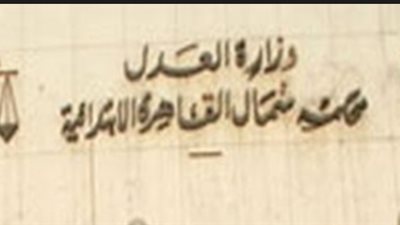 وزارة العدل
محكمة شمال القاهرة الابتدائية